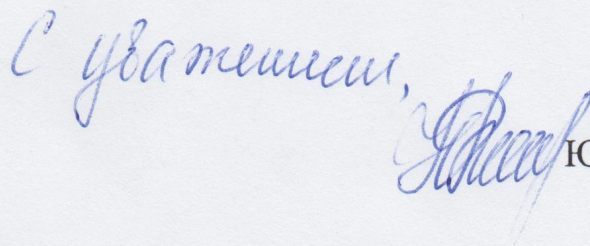 С уважением,
Ю